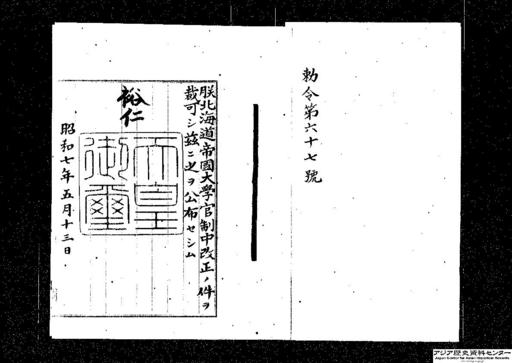 勅令第六十七號
朕北海道帝國大學官制中改正ノ件ヲ
裁可シ茲ニ之ヲ公布セシム
裕仁
天皇
御璽
昭和七年五月十三日
アジア歴史資料センター
Japan Center for Asian Historical Records